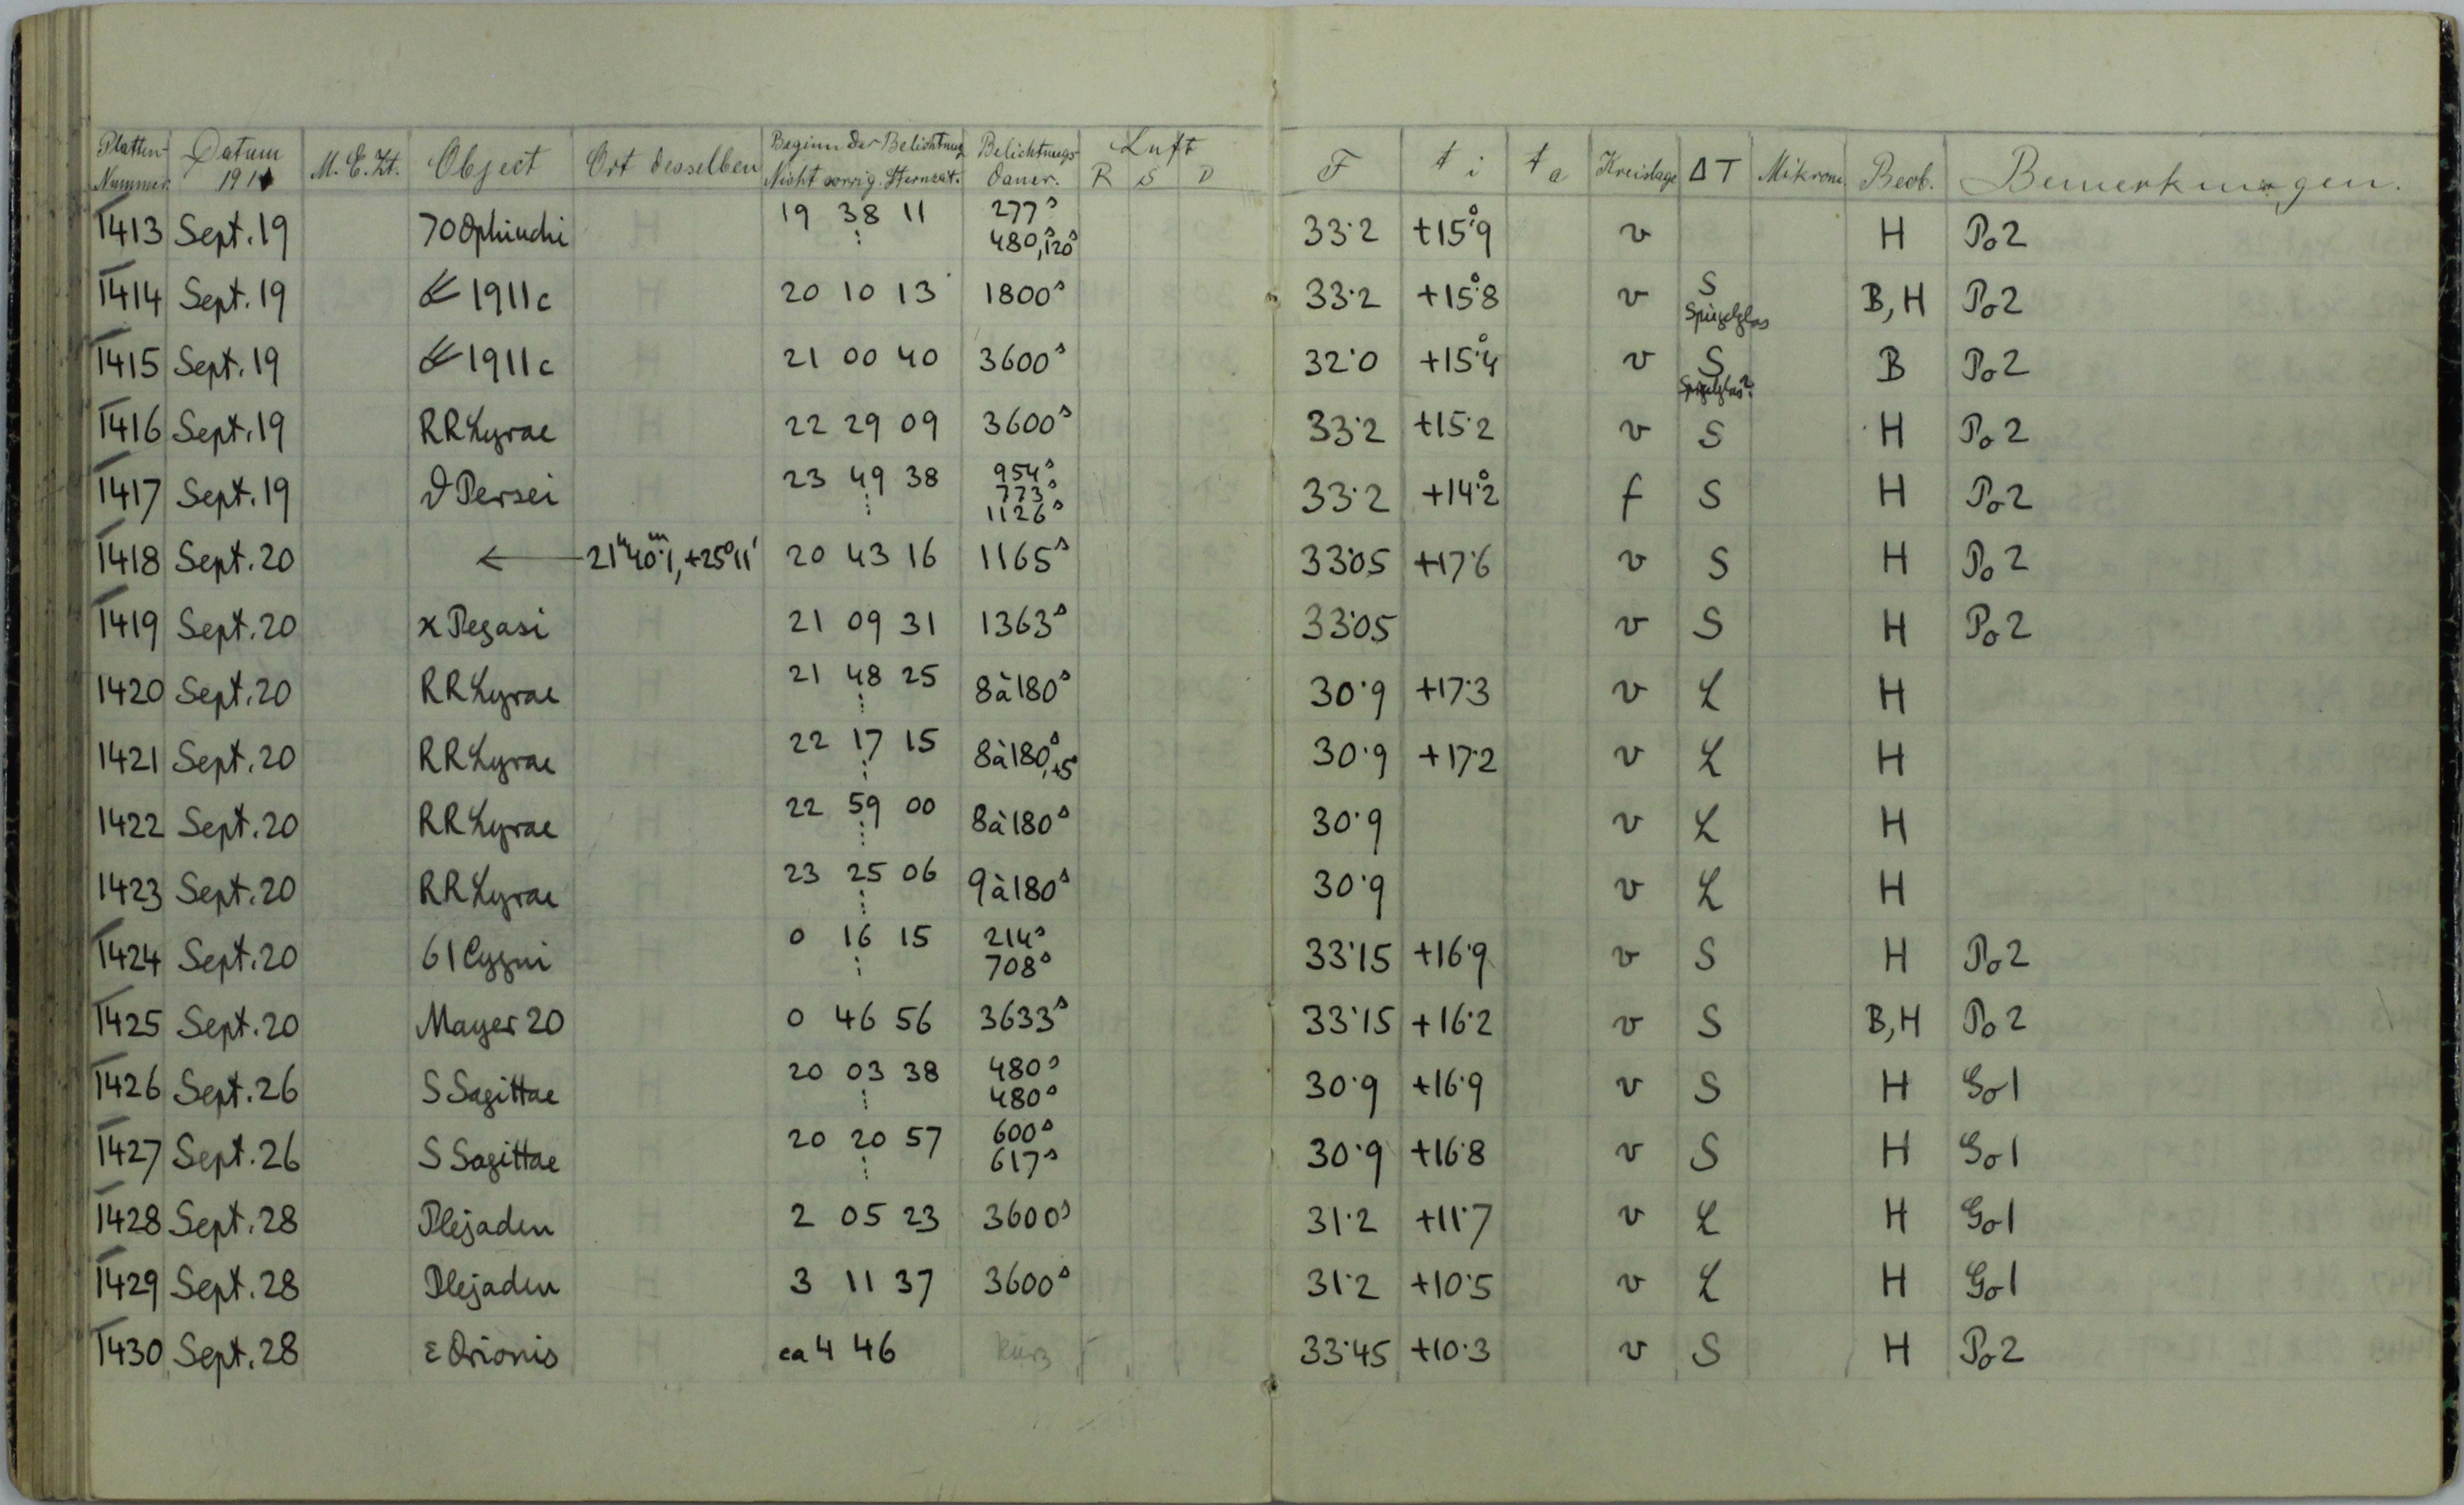 Platten-Nummer. Datum 191 M. E. Zt. Object Ort desselben Beginn der Belichtung Nicht corrig. Sternzeit. Belichtungsdauer. Luft R S D F t i t a Kreislage ΔT Mikrom. Beob. Bemerkungen.
1413 Sept. 19 70 Ophiuchi 19 38 11 277ˢ 480,ˢ120ˢ 33·2 +15°9 v H Po2
1414 Sept. 19 ☄ 1911c 20 10 13 1800ˢ 33·2 +15°8 v S Spiegelglas B, H Po2
1415 Sept. 19 ☄ 1911c 21 00 40 3600ˢ 32·0 +15°4 v S Spiegelglas? B Po2
1416 Sept. 19 RR Lyrae 22 29 09 3600ˢ 33·2 +15·2 v S H Po2
1417 Sept. 19 ϑ Persei 23 49 38 954ˢ 773ˢ 1126ˢ 33·2 +14°2 f S H Po2
1418 Sept. 20 ← 21ʰ40ᵐ1, +25°11' 20 43 16 1165ˢ 33·05 +17·6 v S H Po2
1419 Sept. 20 κ Pegasi 21 09 31 1363ˢ 33·05 v S H Po2
1420 Sept. 20 RR Lyrae 21 48 25 8à180ˢ 30·9 +17·3 v L H
1421 Sept. 20 RR Lyrae 22 17 15 8à180ˢ,+5ˢ 30·9 +17·2 v L H
1422 Sept. 20 RR Lyrae 22 59 00 8à180ˢ 30·9 v L H
1423 Sept. 20 RR Lyrae 23 25 06 9à180ˢ 30·9 v L H
1424 Sept. 20 61 Cygni 0 16 15 214ˢ 708ˢ 33·15 +16·9 v S H Po2
1425 Sept. 20 Mayer 20 0 46 56 3633ˢ 33·15 +16·2 v S B, H Po2
1426 Sept. 26 S Sagittae 20 03 38 480ˢ 480ˢ 30·9 +16·9 v S H Go1
1427 Sept. 26 S Sagittae 20 20 57 600ˢ 617ˢ 30·9 +16·8 v S H Go1
1428 Sept. 28 Plejaden 2 05 23 3600ˢ 31·2 +11·7 v L H Go1
1429 Sept. 28 Plejaden 3 11 37 3600ˢ 31·2 +10·5 v L H Go1
1430 Sept. 28 ε Orionis ca 4 46 kurz 33·45 +10·3 v S H Po2